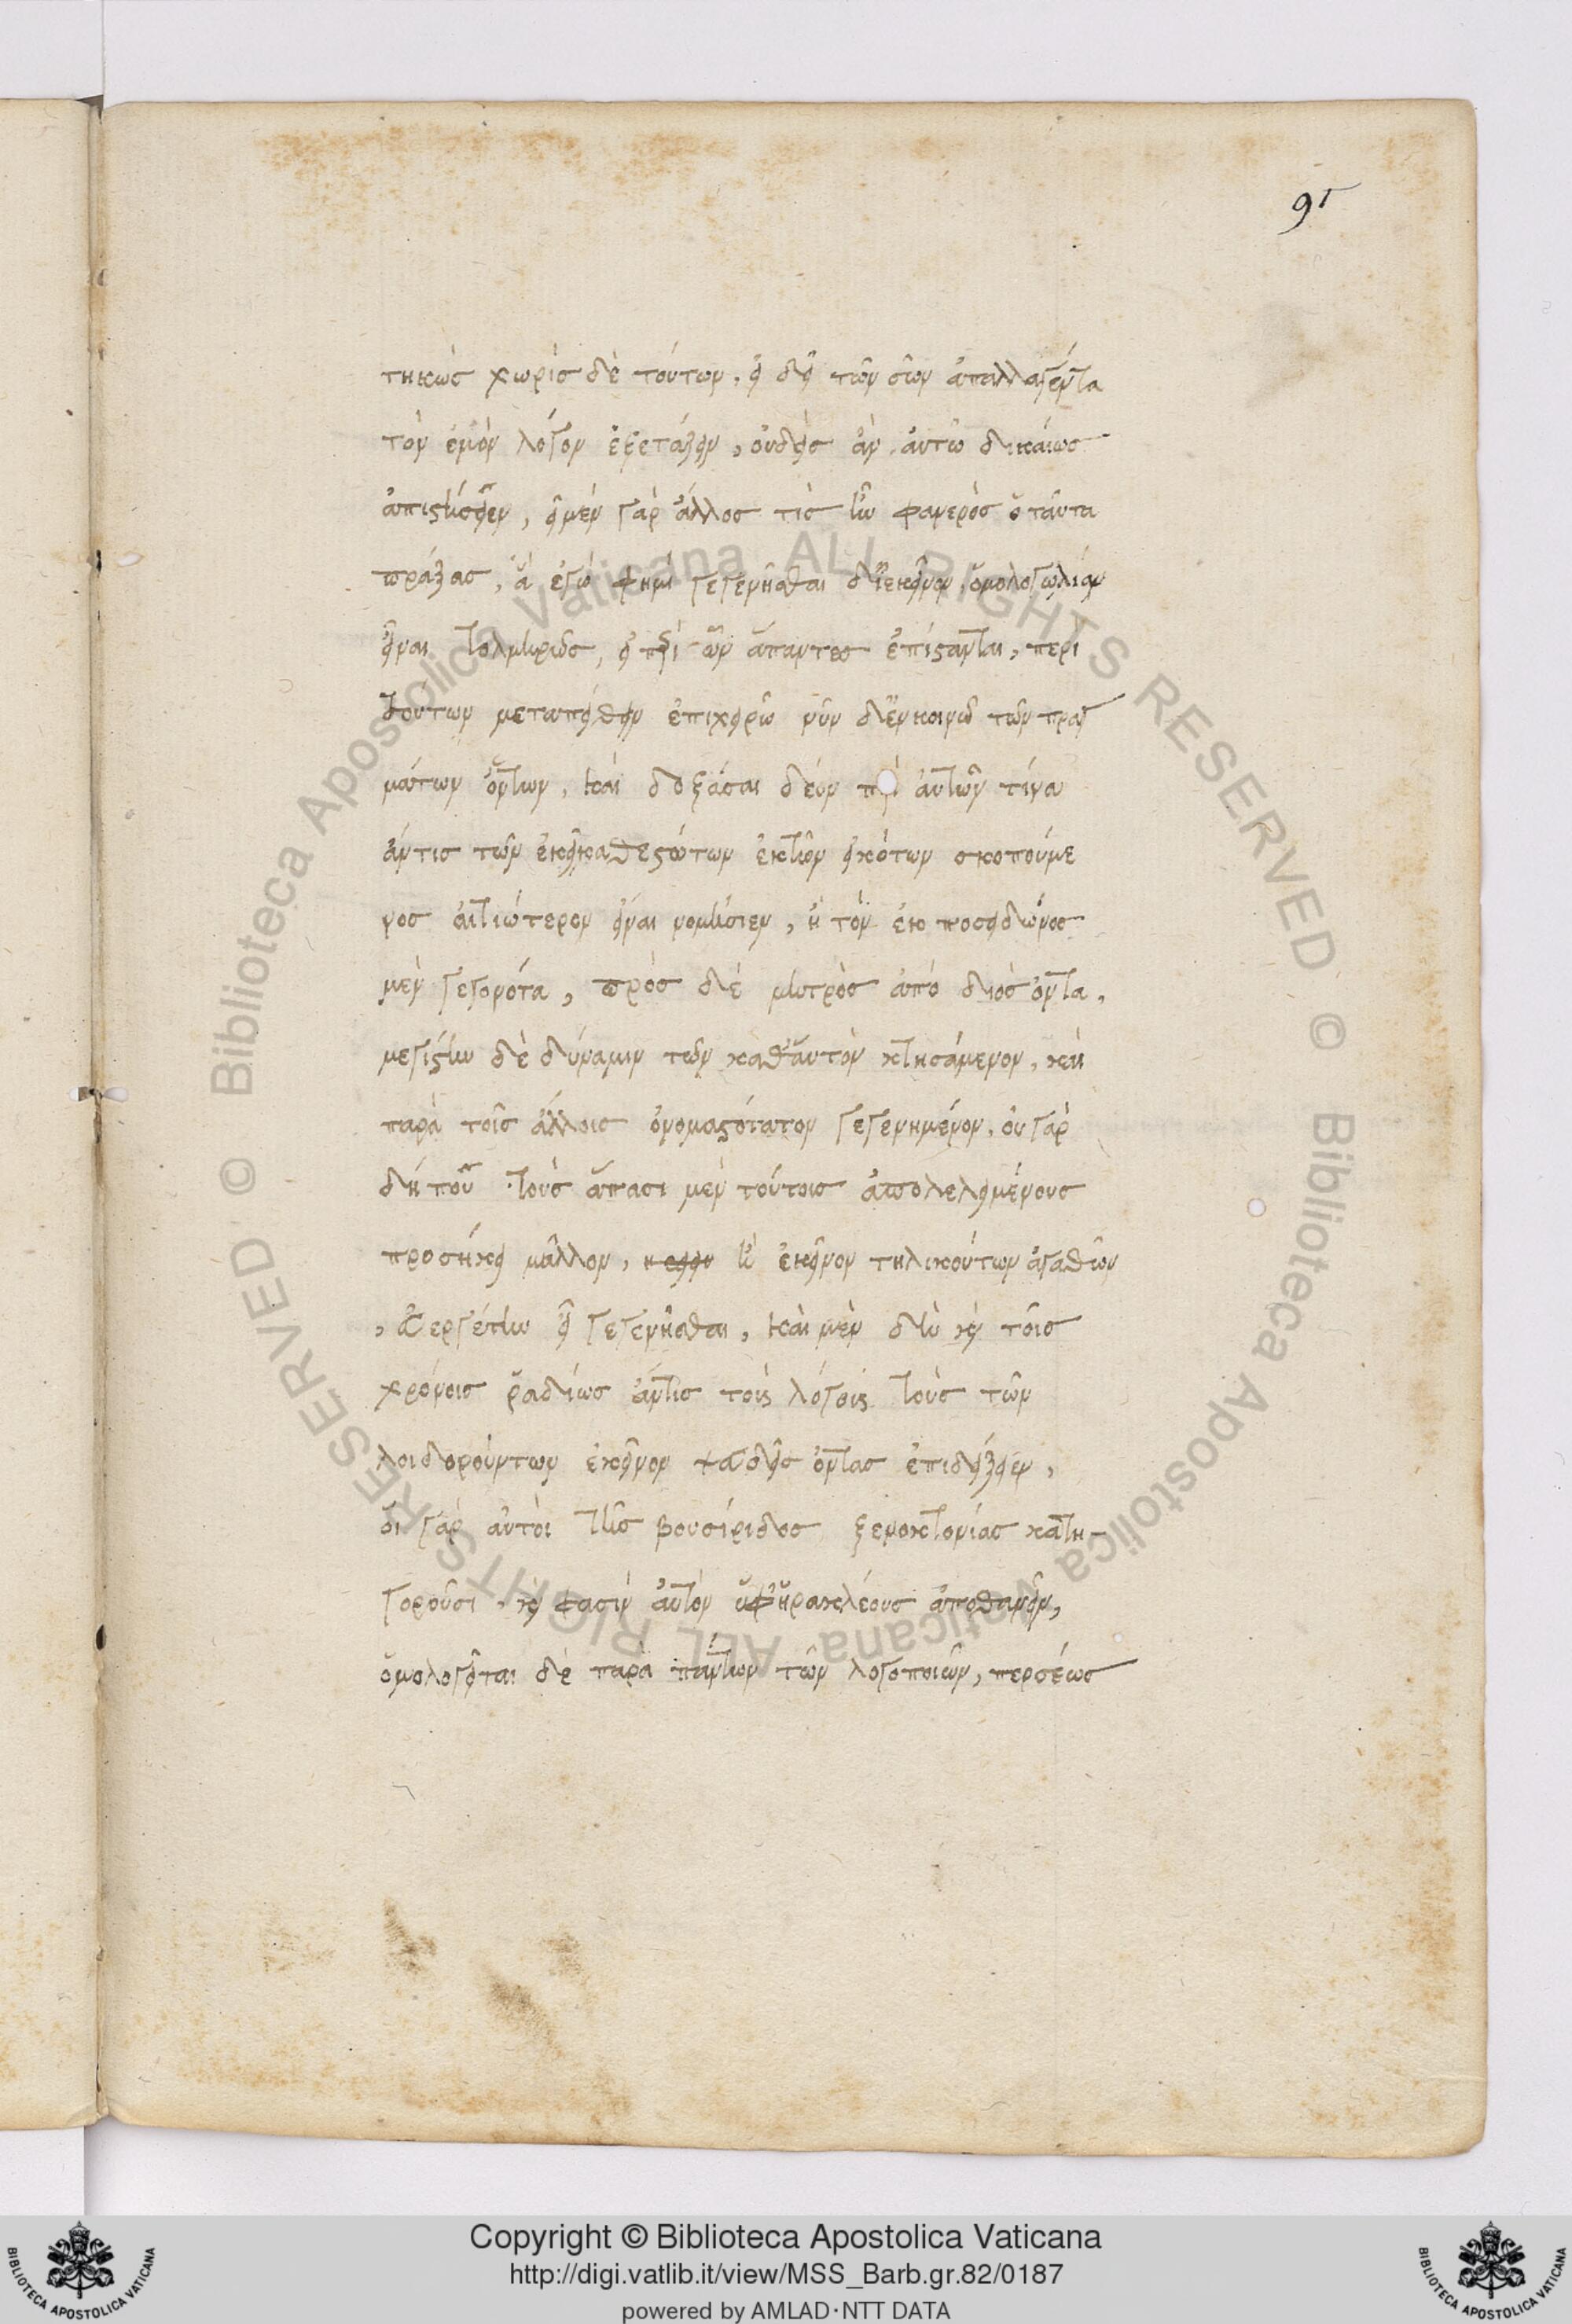 91
τηκὼς χωρὶς δὲ τούτων, εἰ δεῖ τῶν σῶν ἀπαλλαγέντα
τὸν ἐμὸν λόγον ἐξετάζειν, οὐδεὶς ἂν αὐτῶ δικαίως
ἀπιστήσειεν, εἰ μὲν γὰρ ἄλλος τὶς ἦν φανερὸς ὁ ταῦτα
πράξας, ἃ ἐγώ φημι γεγενῆσθαι δι' ἐκεῖνον, ὁμολογῶ λίαν
εἶναι τολμηρὸς, εἰ περὶ ὧν ἅπαντες ἐπίστανται, περὶ
τούτων μεταπείθειν ἐπιχειρῶ νῦν δ' ἐν κοινῶ τῶν πραγ
μάτων ὄντων, καὶ δοξάσαι δέον περὶ αὐτῶν τίνα
ἄν τις τῶν ἐκεῖ καθεστώτων ἐκ τῶν εἰκότων σκοπούμε
νος αἰτιώτερον εἶναι νομίσειεν, ἢ τὸν ἐκ ποσειδῶνος
μὲν γεγονότα, πρὸς δὲ μητρὸς ἀπὸ διὸς ὄντα,
μεγίστην δὲ δύναμιν τῶν καθ' αὑτὸν κτησάμενον, καὶ
παρὰ τοῖς ἄλλοις ὀνομαστότατον γεγενημένον, οὐ γὰρ
δή που τοὺς ἅπασι μὲν τούτοις ἀπολελειμένους
προσήκει μᾶλλον, ἢ ἐκεῖνον τηλικούτων ἀγαθῶν
, εὐεργέτην γεγενῆσθαι, καὶ μὲν δὴ καὶ τοῖς
χρόνοις ῥαδίως ἄν τις τοὺς λόγους τοὺς τῶν
λοιδορούντων ἐκεῖνον ψευδεῖς ὄντας ἐπιδείξειεν,
οἱ γὰρ αὐτοὶ τῆς βουσίριδος ξενοκτονίας κατη-
γοροῦσι, καὶ φασὶν αὐτὸν ὑφ' ἡρακλέους ἀποθανεῖν,
ὁμολογεῖται δὲ παρὰ πάντων τῶν λογοποιῶν, περσέως
Biblioteca Apostolica Vaticana ALL RIGHTS RESERVED ©
Biblioteca Apostolica Vaticana ALL RIGHTS RESERVED ©
Copyright © Biblioteca Apostolica Vaticana
http://digi.vatlib.it/view/MSS_Barb.gr.82/0187
powered by AMLAD·NTT DATA
BIBLIOTECA APOSTOLICA VATICANA
BIBLIOTECA APOSTOLICA VATICANA